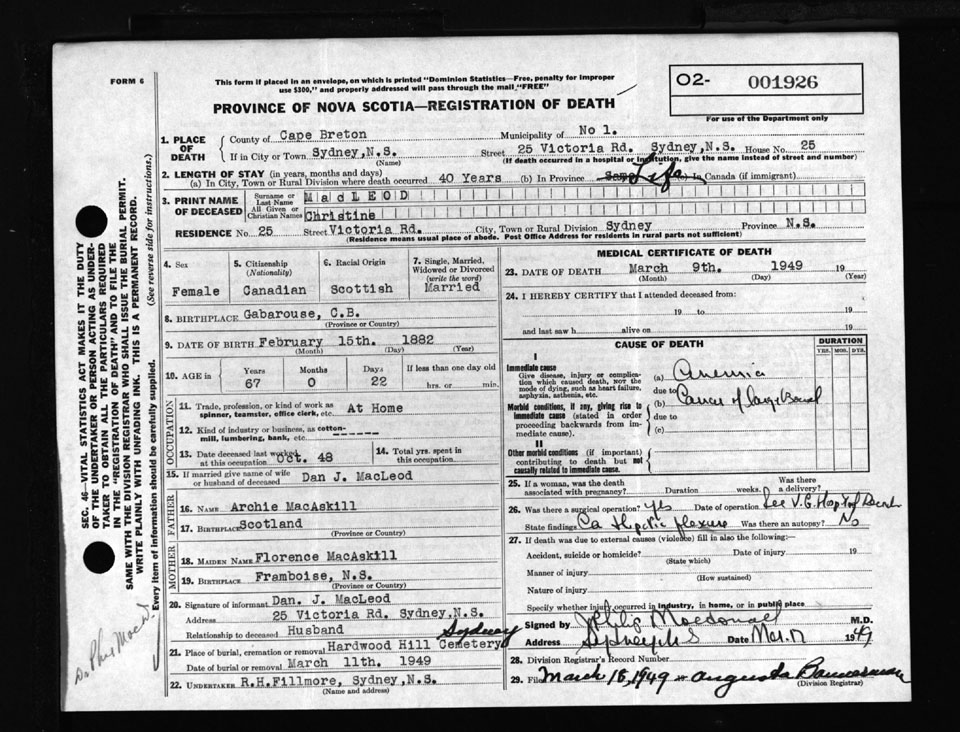 FORM 6
This form if placed in an envelope, on which is printed "Dominion Statistics—Free, penalty for improper
use $300," and properly addressed will pass through the mail "FREE"
O2- 001926
For use of the Department only
PROVINCE OF NOVA SCOTIA—REGISTRATION OF DEATH
1. PLACE OF DEATH
County of Cape Breton Municipality of No 1.
If in City or Town Sydney,N.S. Street 25 Victoria Rd. Sydney,N.S. House No. 25
(Name) (If death occurred in a hospital or institution, give the name instead of street and number)
2. LENGTH OF STAY (in years, months and days)
(a) In City, Town or Rural Division where death occurred 40 Years (b) In Province Life (c) in Canada (if immigrant)
3. PRINT NAME OF DECEASED
Surname or Last Name MacLEOD
All Given or Christian Names Christine
RESIDENCE No. 25 Street Victoria Rd. City, Town or Rural Division Sydney Province N.S.
(Residence means usual place of abode. Post Office Address for residents in rural parts not sufficient)
4. Sex Female
5. Citizenship (Nationality) Canadian
6. Racial Origin Scottish
7. Single, Married, Widowed or Divorced (write the word) Married
8. BIRTHPLACE Gabarouse, C.B.
(Province or Country)
9. DATE OF BIRTH February 15th. 1882
(Month) (Day) (Year)
10. AGE in Years 67 Months 0 Days 22 If less than one day old hrs. or min.
OCCUPATION
11. Trade, profession, or kind of work as spinner, teamster, office clerk, etc. At Home
12. Kind of industry or business, as cotton-mill, lumbering, bank, etc. -------
13. Date deceased last worked at this occupation Oct. 48
14. Total yrs. spent in this occupation
15. If married give name of wife or husband of deceased Dan J. MacLeod
FATHER
16. Name Archie MacAskill
17. Birthplace Scotland
(Province or Country)
MOTHER
18. Maiden Name Florence MacAskill
19. Birthplace Framboise, N.S.
(Province or Country)
20. Signature of informant Dan. J. MacLeod
Address 25 Victoria Rd. Sydney,N.S.
Relationship to deceased Husband
21. Place of burial, cremation or removal Hardwood Hill Cemetery Sydney
Date of burial or removal March 11th. 1949
22. UNDERTAKER R.H.Fillmore, Sydney,N.S.
(Name and address)
MEDICAL CERTIFICATE OF DEATH
23. DATE OF DEATH March 9th. 1949 19
(Month) (Day) (Year)
24. I HEREBY CERTIFY that I attended deceased from:
19 to 19
and last saw h alive on 19
CAUSE OF DEATH
DURATION
YRS. MOS. DYS.
I
Immediate cause
Give disease, injury or complication which caused death, NOT the mode of dying, such as heart failure, asphyxia, asthenia, etc.
(a) Anemia
due to
Morbid conditions, if any, giving rise to immediate cause (stated in order proceeding backwards from immediate cause).
(b) Cancer of Large Bowel
due to
(c)
II
Other morbid conditions (if important) contributing to death but not causally related to immediate cause.
25. If a woman, was the death associated with pregnancy? Duration weeks. Was there a delivery?
26. Was there a surgical operation? Yes Date of operation See V.G. Hospital
State findings Ca Hepatic flexure Was there an autopsy? No
27. If death was due to external causes (violence) fill in also the following:
Accident, suicide or homicide? Date of injury 19
(State which)
Manner of injury
(How sustained)
Nature of injury
Specify whether injury occurred in industry, in home, or in public place
Signed by Philip Macdonald M.D.
Address Sydney N S Date 1949
28. Division Registrar's Record Number
29. Filed March 18, 1949 Augusta Bannerman
(Division Registrar)
SEC. 46—VITAL STATISTICS ACT MAKES IT THE DUTY
OF THE UNDERTAKER OR PERSON ACTING AS UNDER-
TAKER TO OBTAIN ALL THE PARTICULARS REQUIRED
IN THE "REGISTRATION OF DEATH" AND TO FILE THE
SAME WITH THE DIVISION REGISTRAR WHO SHALL ISSUE THE BURIAL PERMIT.
WRITE PLAINLY WITH UNFADING INK. THIS IS A PERMANENT RECORD.
Every item of information should be carefully supplied. (See reverse side for instructions.)